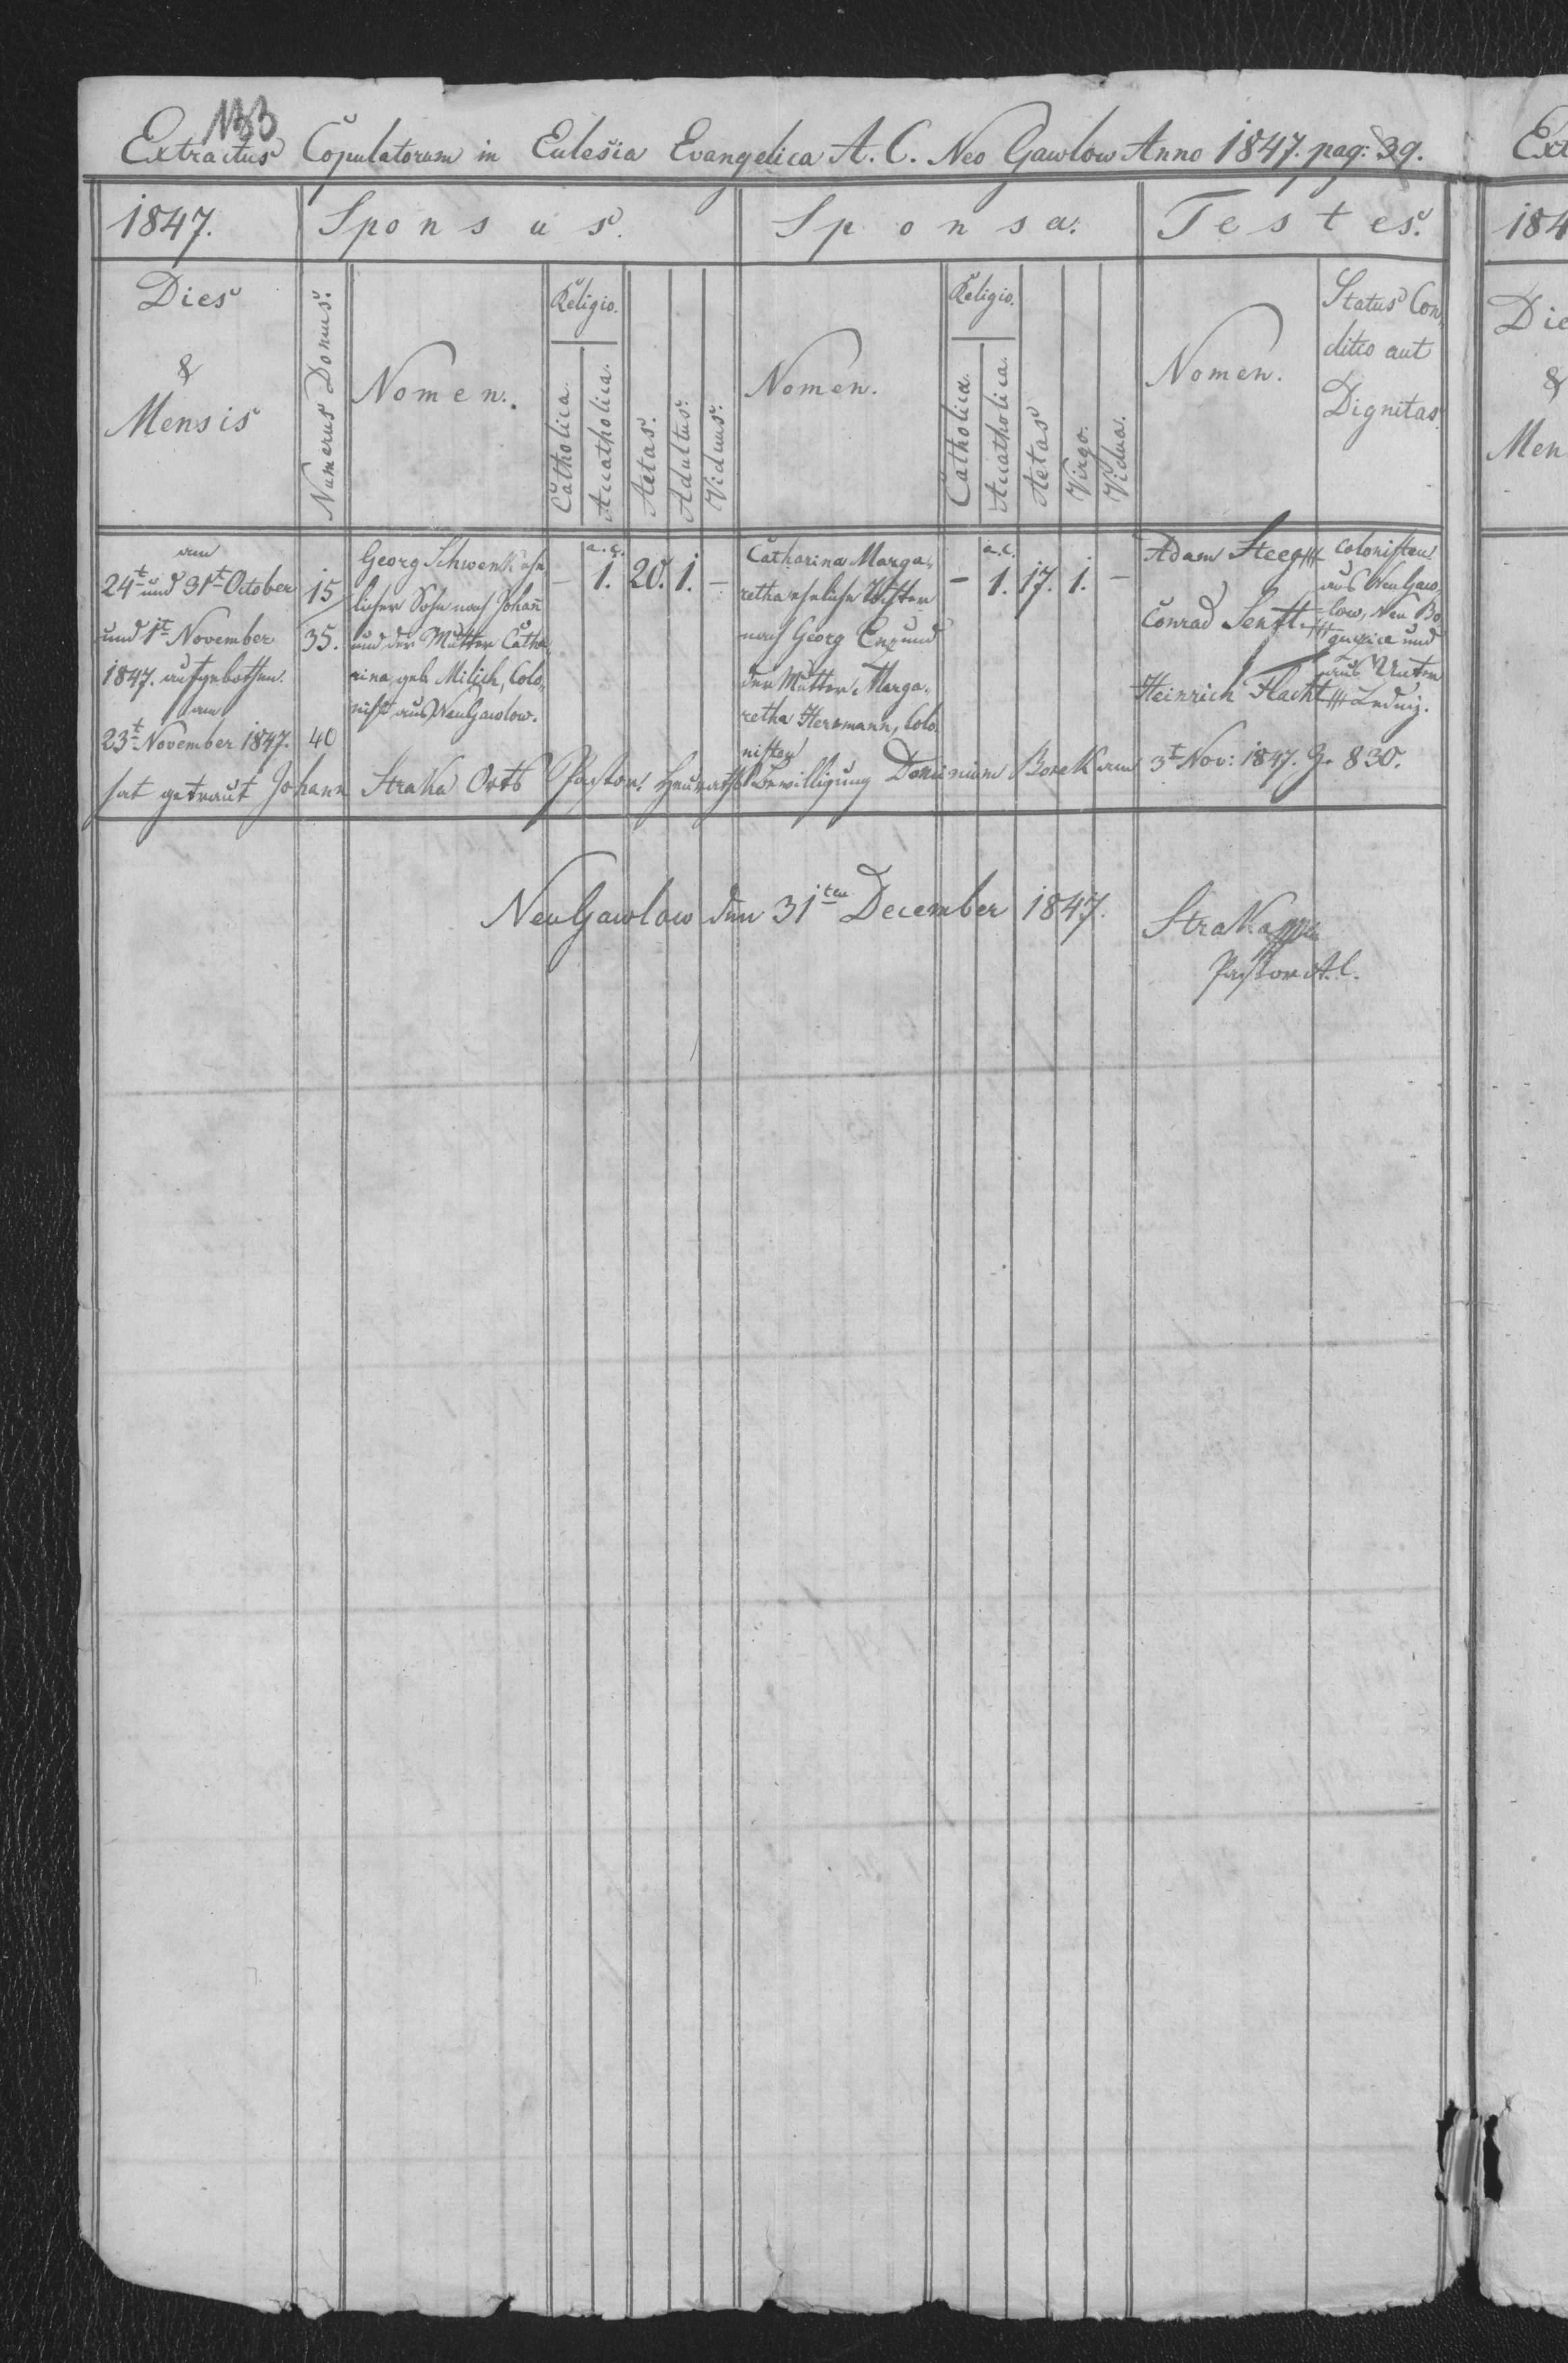 133
Extractus Copulatorum in Eclesia Evangelica A. C. Neo Gawlow Anno 1847. pag: 39.
1847.
Sponsus.
Sponsa.
Testes.
Dies
&
Mensis
Numerus Domus.
Nomen.
Religio.
Catholica.
Acatholica.
Aetas.
Adultus.
Viduus.
Nomen.
Religio.
Catholica.
Acatholica.
Aetas
Virgo.
Vidua.
Nomen.
Status Con
ditio aut
Dignitas.
am
24t und 31t October
und 1t November
1847. aufgebothen.
am
23t November 1847.
15/
35.
40
Georg Schwenk ehe
licher Sohn nach Johañ
und der Mutter Catha
rina geb Milich, Colo,
nist aus NeuGawlow.
–
a. c.
1.
20.
1.
–
Catharina Marga,
retha eheliche Tochter
nach Georg und
der Mutter Marga,
retha Herrmann, Colo
nisten
–
a. c.
1.
17.
1.
–
Adam Steeg
Conrad Senft
Heinrich Flacht
Colonisten
aus NeuGaw,
low, Neu Bo
und
aus Unter
hat getraut Johann Straka Orts Pastor. Heuraths Bewilligung Dominium Borek am 3t Nov: 1847. 830.
NeuGawlow den 31ten December 1847.
Straka
Pastor A. C.
Ext
184
Die
&
Men